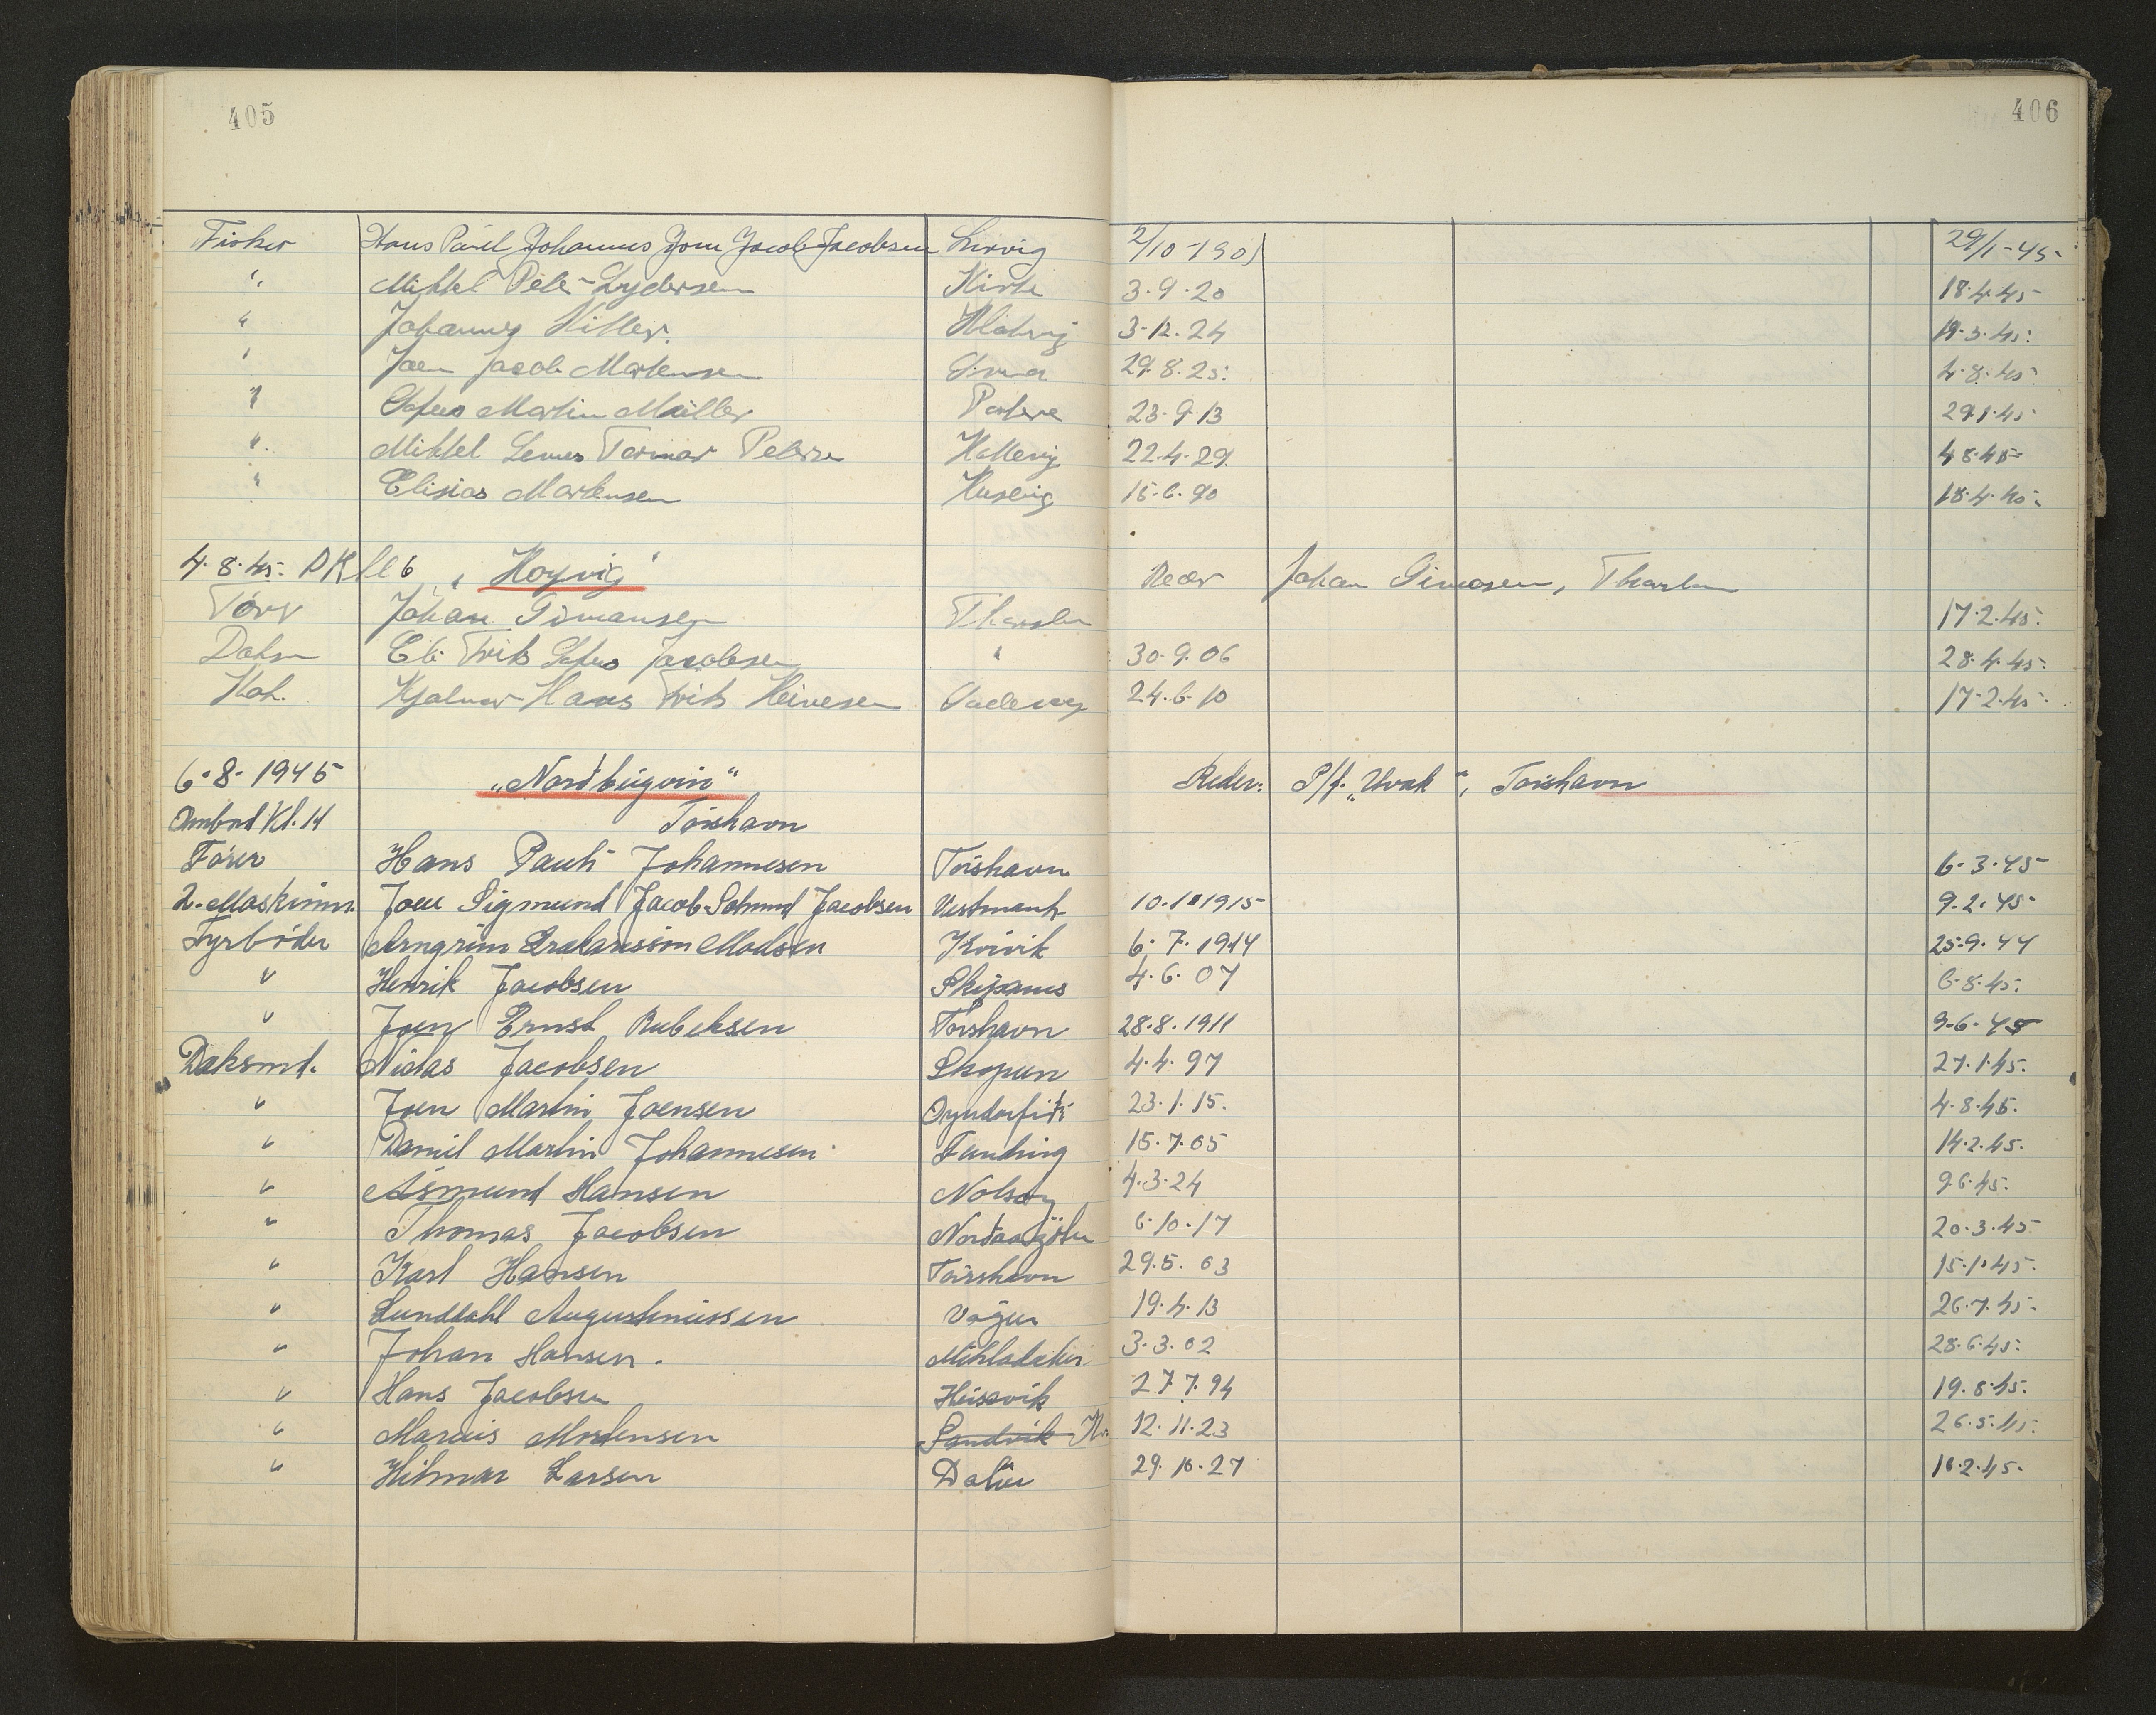 405
406
Fisker Hans Pauel Johannus Jom Jacob Jacobsen Lirvig 2/10-1901 29/1-45
" Mikkel Peter Lydersen Kirke 3.9.20 18.4.45
" Johannes Hiller. 3-12.24 19.3.45.
" Joen Jacob Mortensen 29.8.25. 4.8.45
" Sofus Martin Müller Porkere 23.9.13 29.1.45
" Mikkel Tormar Peterse 22.4.29. 4.8.45
" Elisias Mortensen Husevig 15.6.90 18.4.45.
4.8.45. Kl 6 "Hoyvig" Reder Johan Simosen, Thorshn
Förr Johan Simonsen Thorshn 17.2.45.
Daksm Eli Frits Sofus Jacobsen " 30.9.06 28.4.45.
Kok. Hjalmar Hans Frits Heinesen 24.6.10 17.2.45.
6.8.1945 "Nordbúgvin" Reder: P/f. "Hvak", Torshavn
Ombord Kl. 14 Torshavn
Förer Hans Pauli Johannesen Torshavn 6.3.45
2. Maskinm. Joen Sigmund Jacob Jacobsen Vestmanh 10.1.1915 9.2.45
Fyrböder Arngrim Madsen Kvivik 6.7.1914 25.9.44
" Henrik Jacobsen Skipanes 4.6.07 6.8.45.
" Joen Ernst Rubeksen Torshavn 28.8.1911 9.6.45
Daksmd. Niclas Jacobsen Skopun 4.4.97 27.1.45.
" Joen Martin Joensen Oyndarfirði 23.1.15. 4.8.45.
" Daniel Martin Johannesen Funding 15.7.05 14.2.45.
" Asmund Hansen Nolsoy 4.3.24 9.6.45.
" Thomas Jacobsen Nordragötu 6.10.17 20.3.45
" Karl Hansen Torshavn 29.5.03 15.1.45.
" Lunddahl Augustinussen Vágur 19.4.13 26.7.45.
" Johan Hansen. Mikladalur 3.3.02 28.6.45.
" Hans Jacobsen Húsavik 27.7.94 19.8.45.
" Marius Mortensen Sandvik 12.11.23 26.5.45.
" Hilmar Larsen Dalur 29.10.27 16.2.45.